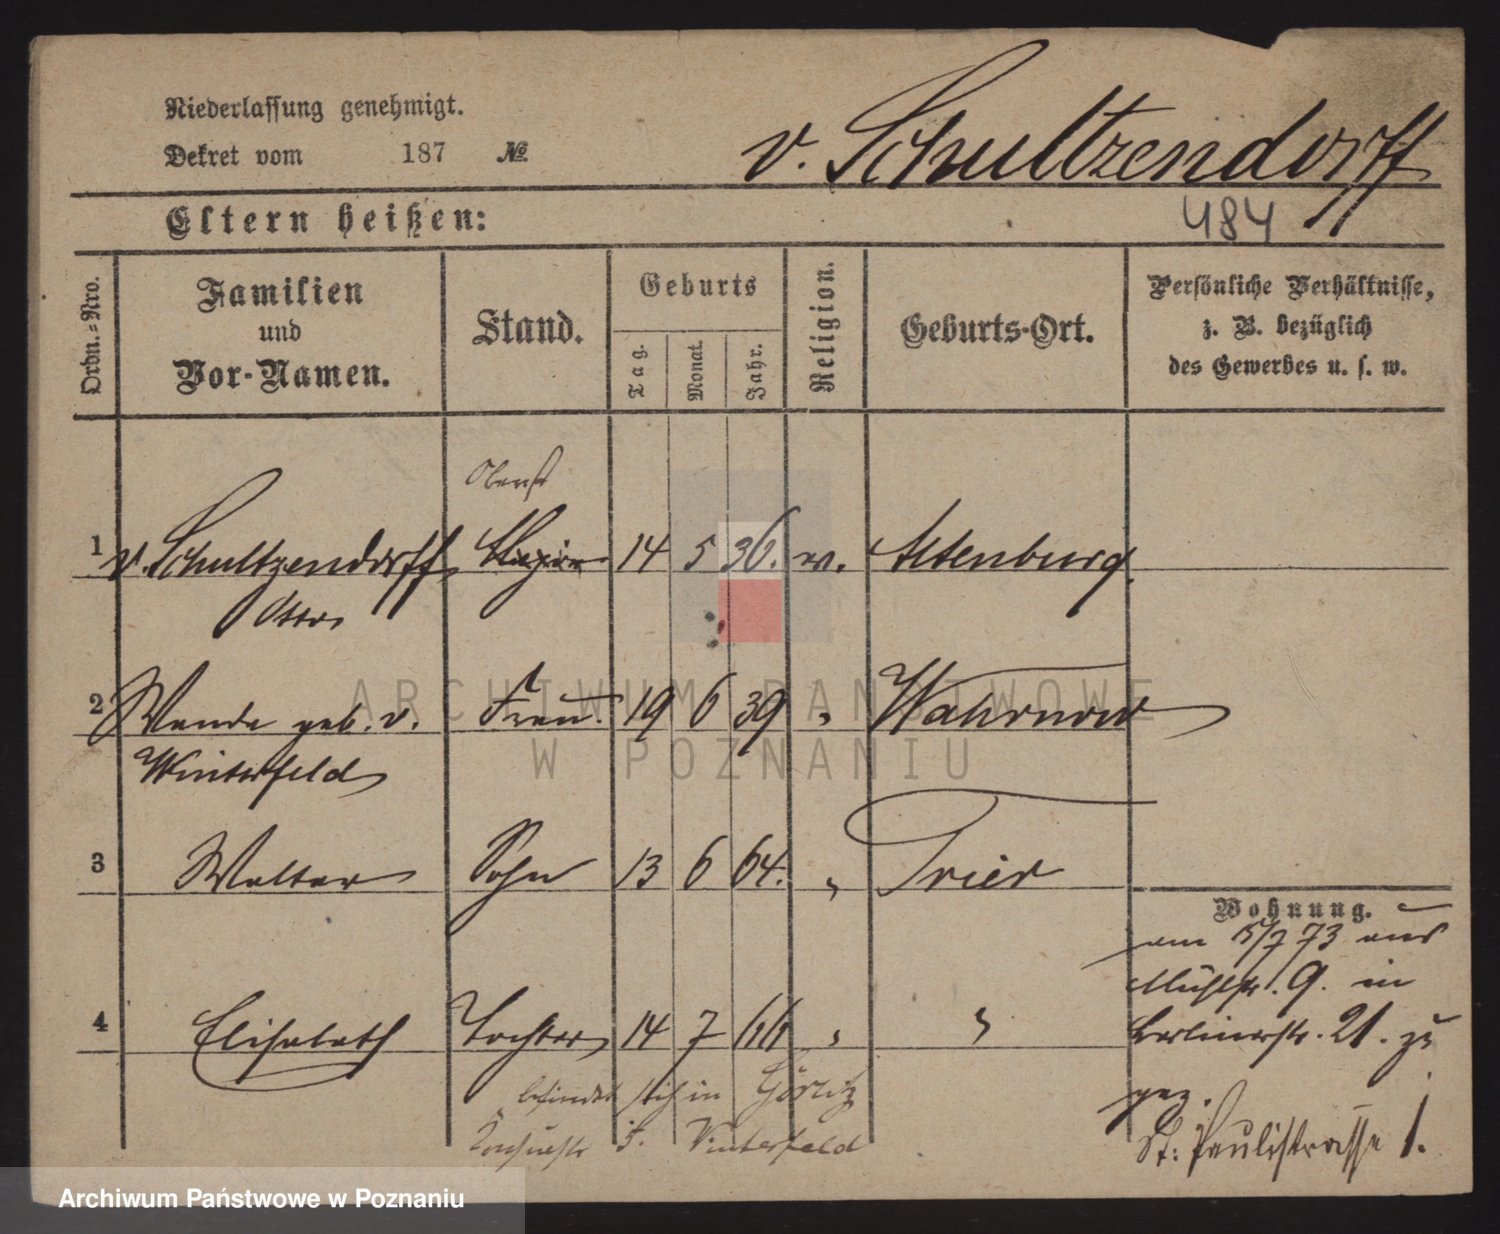 Niederlassung genehmigt.
Dekret vom 187 №
v. Schultzendorff
484
Eltern heißen:
Ordn.-Nro.
Familien und Vor-Namen.
Stand.
Geburts
Tag.
Monat.
Jahr.
Religion.
Geburts-Ort.
Persönliche Verhältnisse,
z. B. bezüglich
des Gewerbes u. s. w.
Oberst
1 v. Schultzendorff Major 14 5 36. ev. Altenburg.
Otto
2 Wanda geb. v. Frau. 19 6 39 " Wahrnow
Winterfeld
3 Walter Sohn 13 6 64. " Trier
4 Elisabeth Tochter 14 7 66 " "
befindet sich in Görlitz
5. Winterfeld
Wohnung.
am 5/7 73 aus
Mühlstr. 9. in
Berlinerstr. 21. zu
gez.
St: Paulistrasse 1.
ARCHIWUM PAŃSTWOWE
W POZNANIU
Archiwum Państwowe w Poznaniu